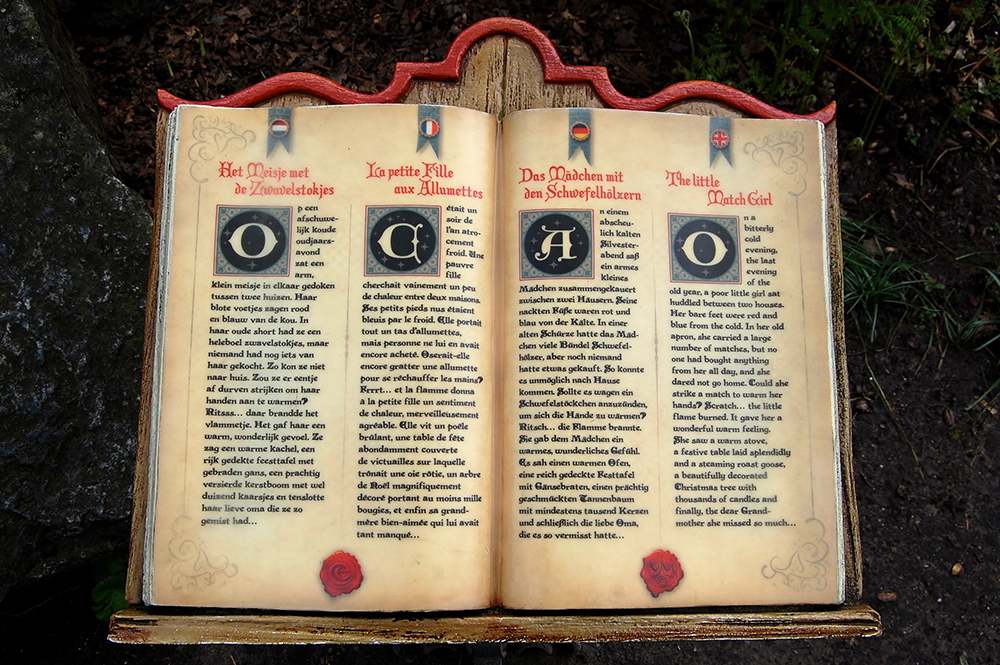 Het Meisje met
de Zwavelstokjes
Op een
afschuwe-
lijk koude
oudjaars-
avond
zat een
arm,
klein meisje in elkaar gedoken
tussen twee huizen. Haar
blote voetjes zagen rood
en blauw van de kou. In
haar oude short had ze een
heleboel zwavelstokjes, maar
niemand had nog iets van
haar gekocht. Zo kon ze niet
naar huis. Zou ze er eentje
af durven strijken om haar
handen aan te warmen?
Ritsss... daar brandde het
vlammetje. Het gaf haar een
warm, wonderlijk gevoel. Ze
zag een warme kachel, een
rijk gedekte feesttafel met
gebraden gans, een prachtig
versierde kerstboom met wel
duizend kaarsjes en tenslotte
haar lieve oma die ze zo
gemist had...
La petite Fille
aux Allumettes
C'était un
soir de
l'an atro-
cement
froid. Une
pauvre
fille
cherchait vainement un peu
de chaleur entre deux maisons.
Ses petits pieds nus étaient
bleuis par le froid. Elle portait
tout un tas d'allumettes,
mais personne ne lui en avait
encore acheté. Oserait-elle
encore gratter une allumette
pour se réchauffer les mains?
Frrrt... et la flamme donna
à la petite fille un sentiment
de chaleur, merveilleusement
agréable. Elle vit un poêle
brûlant, une table de fête
abondamment couverte
de victuailles sur laquelle
trônait une oie rôtie, un arbre
de Noël magnifiquement
décoré portant au moins mille
bougies, et enfin sa grand-
mère bien-aimée qui lui avait
tant manqué...
Das Mädchen mit
den Schwefelhölzern
An einem
abscheu-
lich kalten
Silvester-
abend saß
ein armes
kleines
Mädchen zusammengekauert
zwischen zwei Häusern. Seine
nackten Füße waren rot und
blau von der Kälte. In einer
alten Schürze hatte das Mäd-
chen viele Bündel Schwefel-
hölzer, aber noch niemand
hatte etwas gekauft. So konnte
es unmöglich nach Hause
kommen. Sollte es wagen ein
Schwefelstöckchen anzuzünden,
um sich die Hände zu wärmen?
Ritsch... die Flamme brannte.
Sie gab dem Mädchen ein
warmes, wunderliches Gefühl.
Es sah einen warmen Ofen,
eine reich gedeckte Festtafel
mit Gänsebraten, einen prächtig
geschmückten Tannenbaum
mit mindestens tausend Kerzen
und schließlich die liebe Oma,
die es so vermisst hatte...
The little
Match Girl
On a
bitterly
cold
evening,
the last
evening
of the
old year, a poor little girl sat
huddled between two houses.
Her bare feet were red and
blue from the cold. In her old
apron, she carried a large
number of matches, but no
one had bought anything
from her all day, and she
dared not go home. Could she
strike a match to warm her
hands? Scratch... the little
flame burned. It gave her a
wonderful warm feeling.
She saw a warm stove,
a festive table laid splendidly
and a steaming roast goose,
a beautifully decorated
Christmas tree with
thousands of candles and
finally, the dear Grand-
mother she missed so much...